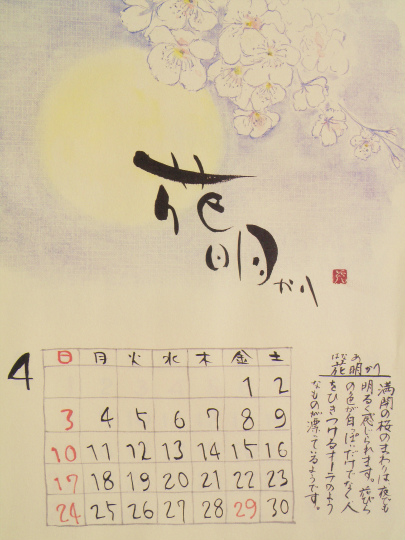 花
明かり
4
日 月 火 水 木 金 土
1 2
3 4 5 6 7 8 9
10 11 12 13 14 15 16
17 18 19 20 21 22 23
24 25 26 27 28 29 30
はな あ
花明かり
満開の桜のまわりは夜でも
明るく感じられます。花びら
の色が白っぽいだけでなく人
をひきつけるオーラのよう
なものが漂っているようです。